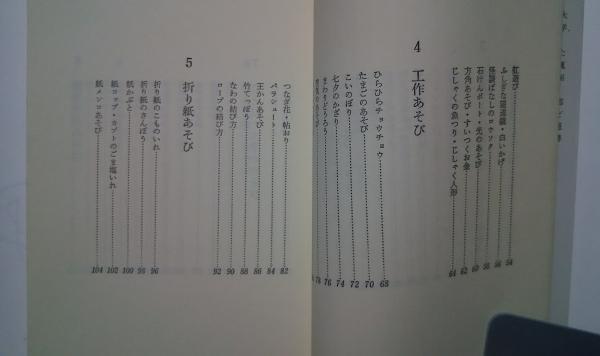 虹遊び 54
ふしぎな望遠鏡・白いかげ 56
怪談ばなしのロウソク 58
石けんボート・光のあそび 60
方角あそび・すいつくお金 62
じしゃくの魚つり・じしゃく人形 64
4 工作あそび
ひらひらチョウチョウ 68
たまごのあそび 70
こいのぼり 72
七夕のかざり 74
まわりどうろう 76
78
つなぎ花・帖おり 82
パラシュート 84
王かんあそび 86
竹でっぽう 88
なわの結び方 90
ロープの結び方 92
5 折り紙あそび
折り紙のこものいれ 96
折り紙のさんぼう 98
紙かぶと 100
紙コップ・カブトのごま塩いれ 102
紙メンコあそび 104